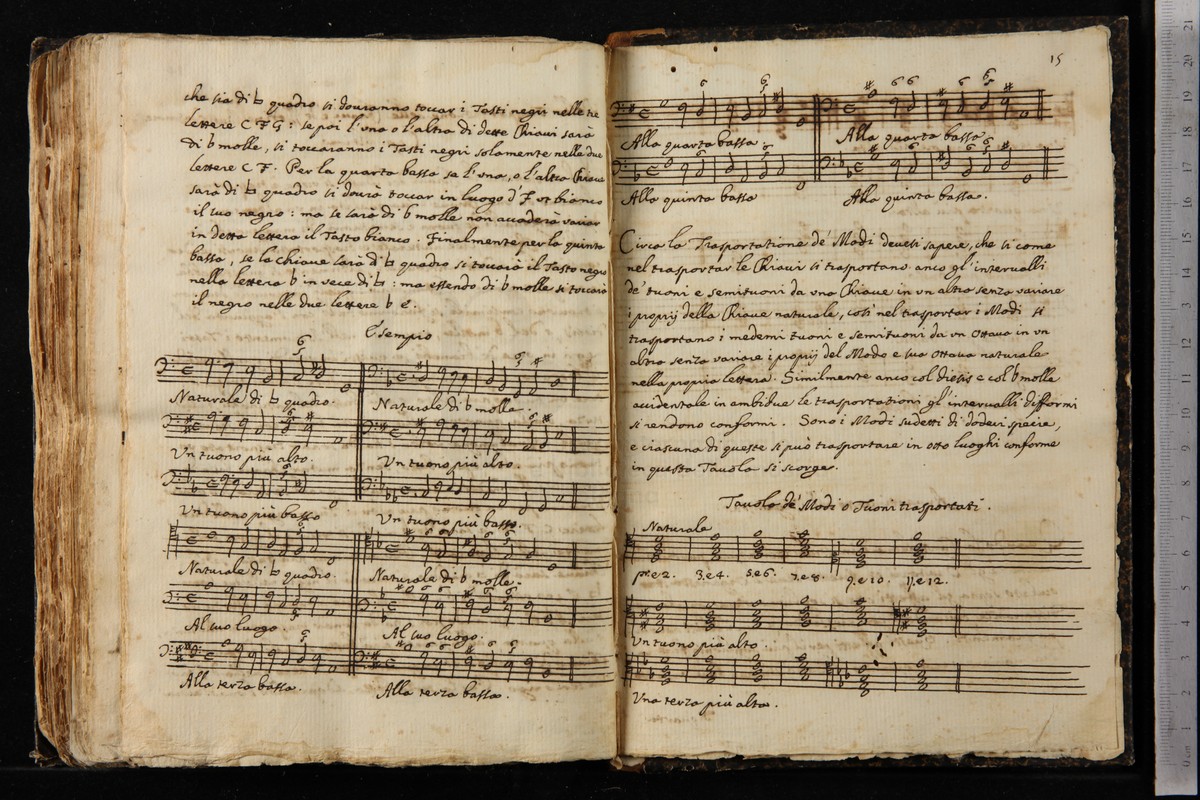 che sia di ♮ quadro si douranno toccar i Tasti negri nelle tre
lettere C F G: se poi l'vna o l'altra di dette Chiaui sarà
di b molle, si toccaranno i Tasti negri solamente nelle due
lettere C F. Per la quarta bassa se l'una, o l'altra Chiaue
sarà di ♮ quadro si dourà toccar in luogo d'F ut bianco
il suo negro: ma se sarà di b molle non accaderà variar
in detta lettera il Tasto bianco. Finalmente per la quinta
bassa, se la Chiaue sarà di ♮ quadro si toccarà il Tasto negro
nella lettera b in vece di ♮: ma essendo di b molle si toccarà
il negro nelle due lettere b e.
Esempio
6 5
6 5
Naturale di ♮ quadro.
Naturale di b molle.
Un tuono più alto.
Un tuono più alto.
Un tuono più basso
Un tuono più basso.
Naturale di ♮ quadro.
Naturale di b molle.
Al suo luogo.
Al suo luogo.
Alla terza bassa.
Alla terza bassa.
15
Alla quarta bassa.
Alla quarta bassa
Alla quinta bassa
Alla quinta bassa.
Circa la Trasportatione de' Modi deuesi sapere, che si come
nel trasportar le Chiaui si trasportano anco gl'interualli
de' tuoni e semituoni da vna Chiaue in vn altra senza variare
i proprij della Chiaue naturale, così nel trasportar i Modi si
trasportano i medemi tuoni e semituoni da vn Ottaua in vn
altra senza variare i proprij del Modo e sua Ottaua naturale
nella propria lettera. Similmente anco col diesis e col b molle
accidentale in ambidue le trasportationi gl'interualli difformi
si rendono conformi. Sono i Modi sudetti di dodeci specie,
e ciascuna di queste si può trasportare in otto luoghi conforme
in questa Tauola si scorge.
Tauola de' Modi o Tuoni trasportati.
Naturale
pr. e 2. 3. e 4. 5. e 6. 7. e 8. 9. e 10. 11. e 12.
Un tuono più alto.
Una terza più alta.